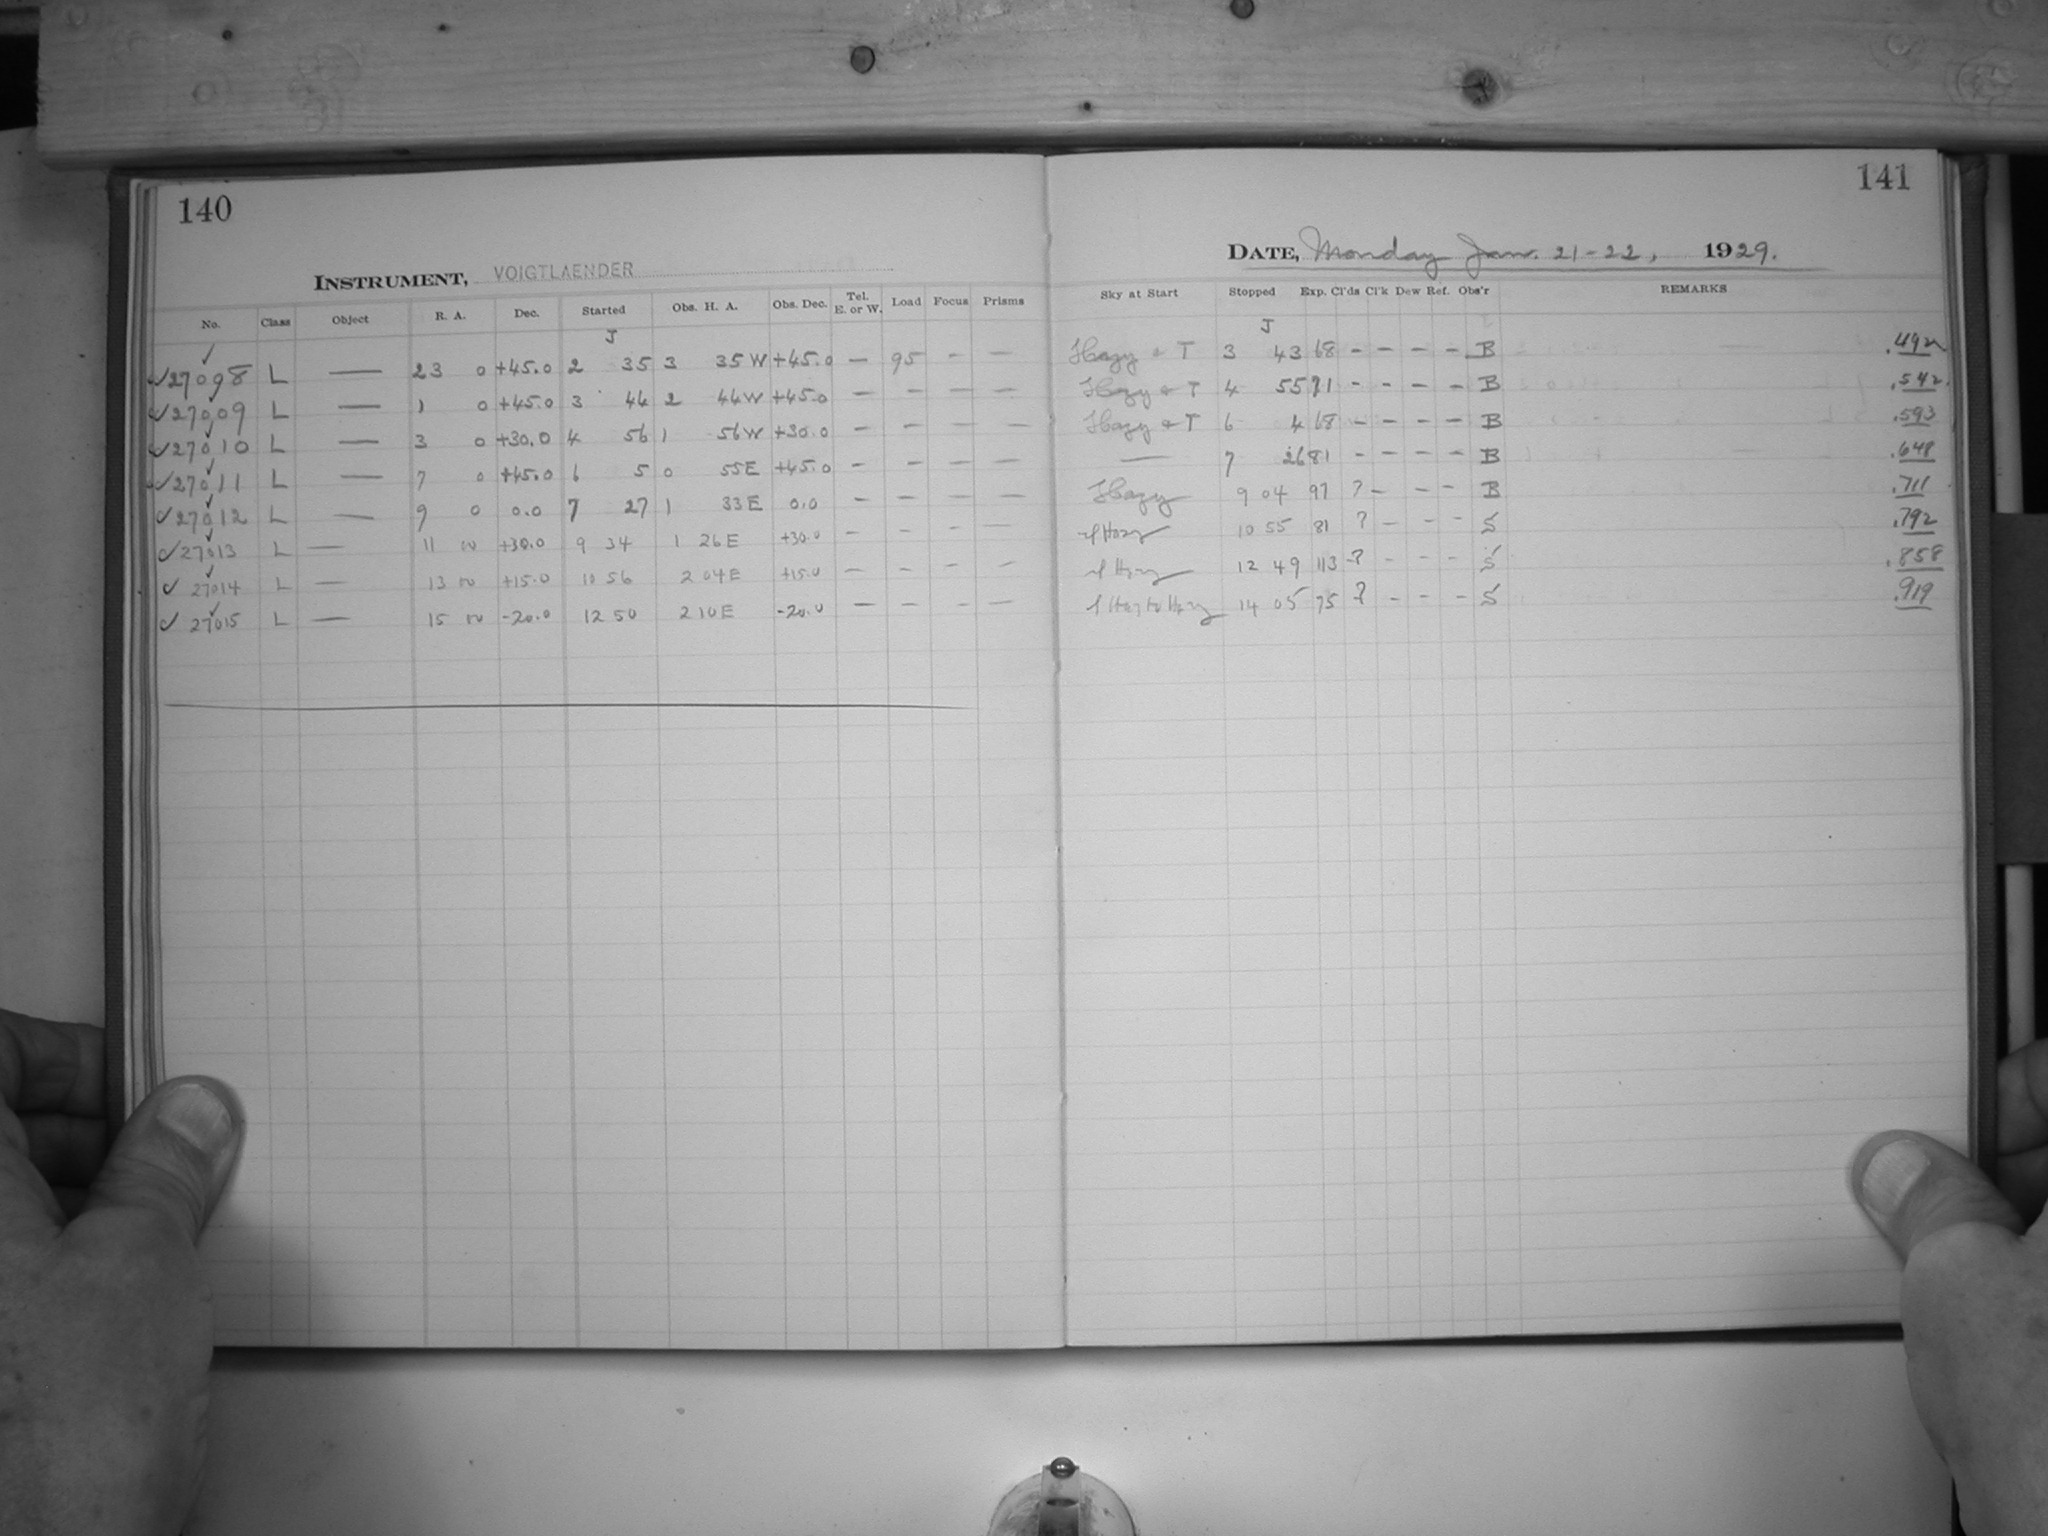 140
INSTRUMENT, VOIGTLAENDER
No. Class Object R. A. Dec. Started Obs. H. A. Obs. Dec. Tel. E. or W. Load Focus Prisms
J
✓27098 L — 23 0 +45.0 2 35 3 35 W +45.0 — 95 - —
✓27009 L — 1 0 +45.0 3 44 2 44 W +45.0 — — — —
✓27010 L — 3 0 +30.0 4 56 1 56 W +30.0 — — — —
✓27011 L — 7 0 +45.0 6 5 0 55 E +45.0 — — — —
✓27012 L — 9 0 0.0 7 27 1 33 E 0.0 — — — —
✓27013 L — 11 00 +30.0 9 34 1 26 E +30.0 — - — —
✓27014 L — 13 00 +15.0 10 56 2 04 E +15.0 — — — —
✓27015 L — 15 00 -20.0 12 50 2 10 E -20.0 — - - —
141
DATE, Monday Jan. 21-22, 1929.
Sky at Start Stopped Exp. Cl'ds Cl'k Dew Ref. Obs'r REMARKS
J
Hazy & T 3 43 68 - - - - B .492
Hazy & T 4 55 71 - - - - B .542
Hazy & T 6 4 68 - - - - B .593
— 7 26 81 - - - - B .648
Hazy 9 04 97 ? - - - B .711
Hazy 10 55 81 ? - - - S .792
12 49 113 ? - - - S .858
14 05 75 ? - - - S .919